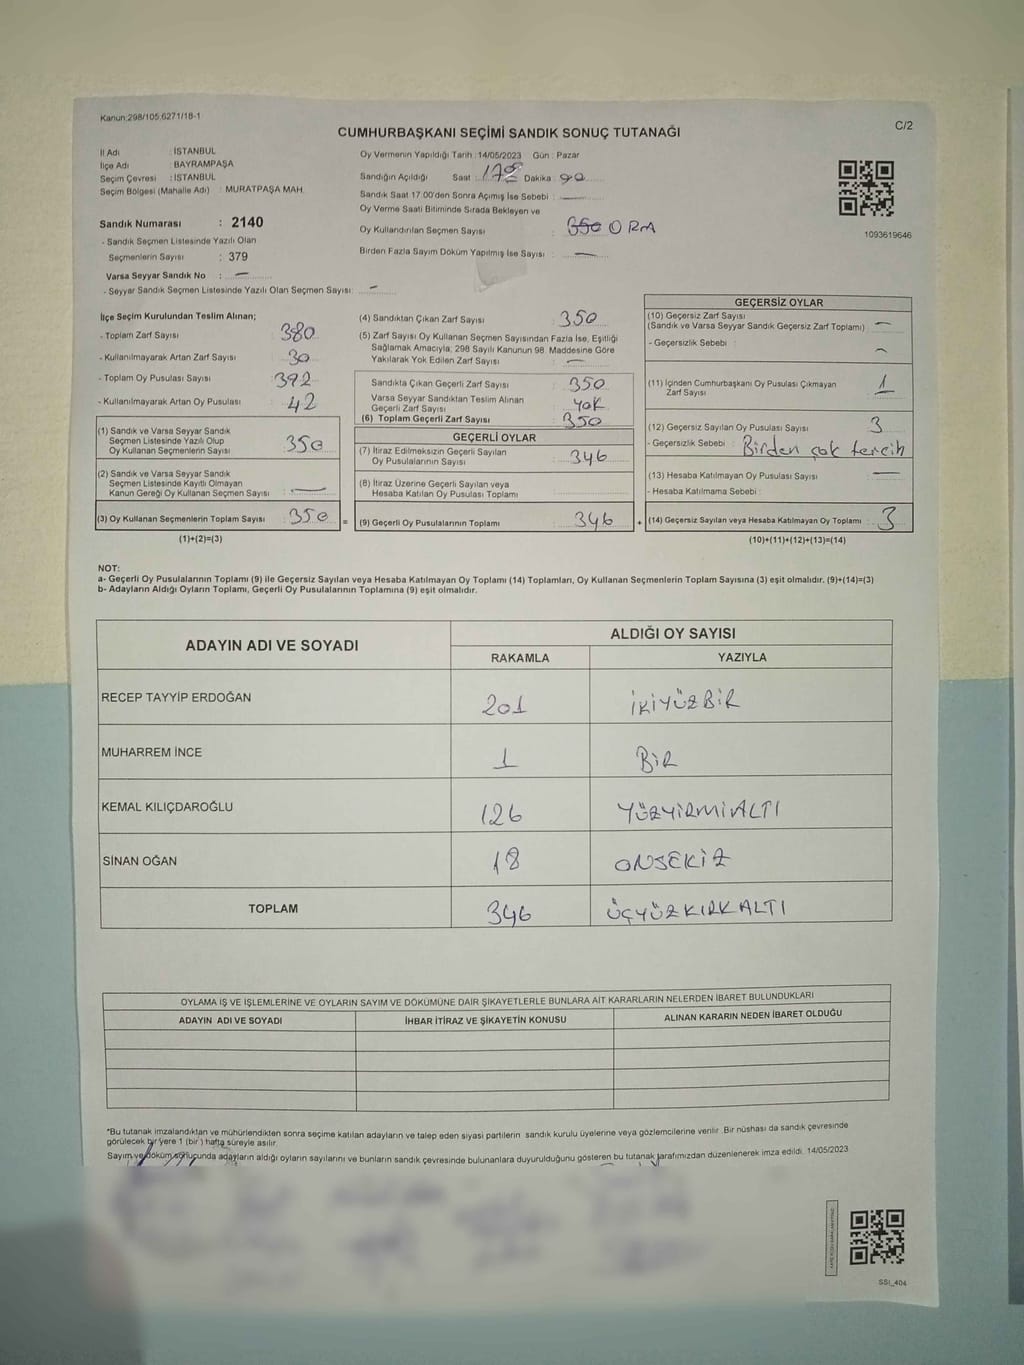 Kanun:298/105,6271/18-1
C/2
CUMHURBAŞKANI SEÇİMİ SANDIK SONUÇ TUTANAĞI
İl Adı : İSTANBUL
İlçe Adı : BAYRAMPAŞA
Seçim Çevresi : İSTANBUL
Seçim Bölgesi (Mahalle Adı) : MURATPAŞA MAH.
Sandık Numarası : 2140
- Sandık Seçmen Listesinde Yazılı Olan
Seçmenlerin Sayısı : 379
Varsa Seyyar Sandık No : —
- Seyyar Sandık Seçmen Listesinde Yazılı Olan Seçmen Sayısı: —
Oy Vermenin Yapıldığı Tarih : 14/05/2023 Gün : Pazar
Sandığın Açıldığı Saat : Dakika :
Sandık Saat 17.00'den Sonra Açımış İse Sebebi : —
Oy Verme Saati Bitiminde Sırada Bekleyen ve
Oy Kullandırılan Seçmen Sayısı :
Birden Fazla Sayım Döküm Yapılmış İse Sayısı : —
1093619646
İlçe Seçim Kurulundan Teslim Alınan;
- Toplam Zarf Sayısı : 380
- Kullanılmayarak Artan Zarf Sayısı : 30
- Toplam Oy Pusulası Sayısı : 392
- Kullanılmayarak Artan Oy Pusulası : 42
(1) Sandık ve Varsa Seyyar Sandık
Seçmen Listesinde Yazılı Olup
Oy Kullanan Seçmenlerin Sayısı : 350
(2) Sandık ve Varsa Seyyar Sandık
Seçmen Listesinde Kayıtlı Olmayan
Kanun Gereği Oy Kullanan Seçmen Sayısı : —
(3) Oy Kullanan Seçmenlerin Toplam Sayısı : 350
(1)+(2)=(3)
(4) Sandıktan Çıkan Zarf Sayısı : 350
(5) Zarf Sayısı Oy Kullanan Seçmen Sayısından Fazla İse, Eşitliği
Sağlamak Amacıyla, 298 Sayılı Kanunun 98. Maddesine Göre
Yakılarak Yok Edilen Zarf Sayısı : —
Sandıkta Çıkan Geçerli Zarf Sayısı : 350
Varsa Seyyar Sandıktan Teslim Alınan
Geçerli Zarf Sayısı : YOK
(6) Toplam Geçerli Zarf Sayısı : 350
GEÇERLİ OYLAR
(7) İtiraz Edilmeksizin Geçerli Sayılan
Oy Pusulalarının Sayısı : 346
(8) İtiraz Üzerine Geçerli Sayılan veya
Hesaba Katılan Oy Pusulası Toplamı :
= (9) Geçerli Oy Pusulalarının Toplamı : 346
GEÇERSİZ OYLAR
(10) Geçersiz Zarf Sayısı
(Sandık ve Varsa Seyyar Sandık Geçersiz Zarf Toplamı) : —
- Geçersizlik Sebebi : —
(11) İçinden Cumhurbaşkanı Oy Pusulası Çıkmayan
Zarf Sayısı : 1
(12) Geçersiz Sayılan Oy Pusulası Sayısı : 3
- Geçersizlik Sebebi : Birden çok tercih
(13) Hesaba Katılmayan Oy Pusulası Sayısı : —
- Hesaba Katılmama Sebebi :
+ (14) Geçersiz Sayılan veya Hesaba Katılmayan Oy Toplamı : 3
(10)+(11)+(12)+(13)=(14)
NOT:
a- Geçerli Oy Pusulalarının Toplamı (9) ile Geçersiz Sayılan veya Hesaba Katılmayan Oy Toplamı (14) Toplamları, Oy Kullanan Seçmenlerin Toplam Sayısına (3) eşit olmalıdır. (9)+(14)=(3)
b- Adayların Aldığı Oyların Toplamı, Geçerli Oy Pusulalarının Toplamına (9) eşit olmalıdır.
ADAYIN ADI VE SOYADI
ALDIĞI OY SAYISI
RAKAMLA YAZIYLA
RECEP TAYYİP ERDOĞAN 201 İKİYÜZBİR
MUHARREM İNCE 1 BİR
KEMAL KILIÇDAROĞLU 126 YÜZYİRMİALTI
SİNAN OĞAN 18 ONSEKİZ
TOPLAM 346 ÜÇYÜZKIRKALTI
OYLAMA İŞ VE İŞLEMLERİNE VE OYLARIN SAYIM VE DÖKÜMÜNE DAİR ŞİKAYETLERLE BUNLARA AİT KARARLARIN NELERDEN İBARET BULUNDUKLARI
ADAYIN ADI VE SOYADI İHBAR İTİRAZ VE ŞİKAYETİN KONUSU ALINAN KARARIN NEDEN İBARET OLDUĞU
*Bu tutanak imzalandıktan ve mühürlendikten sonra seçime katılan adayların ve talep eden siyasi partilerin sandık kurulu üyelerine veya gözlemcilerine verilir. Bir nüshası da sandık çevresinde
görülecek bir yere 1 (bir) hafta süreyle asılır.
Sayım ve döküm sonucunda adayların aldığı oyların sayılarını ve bunların sandık çevresinde bulunanlara duyurulduğunu gösteren bu tutanak tarafımızdan düzenlenerek imza edildi. 14/05/2023
SSI_404